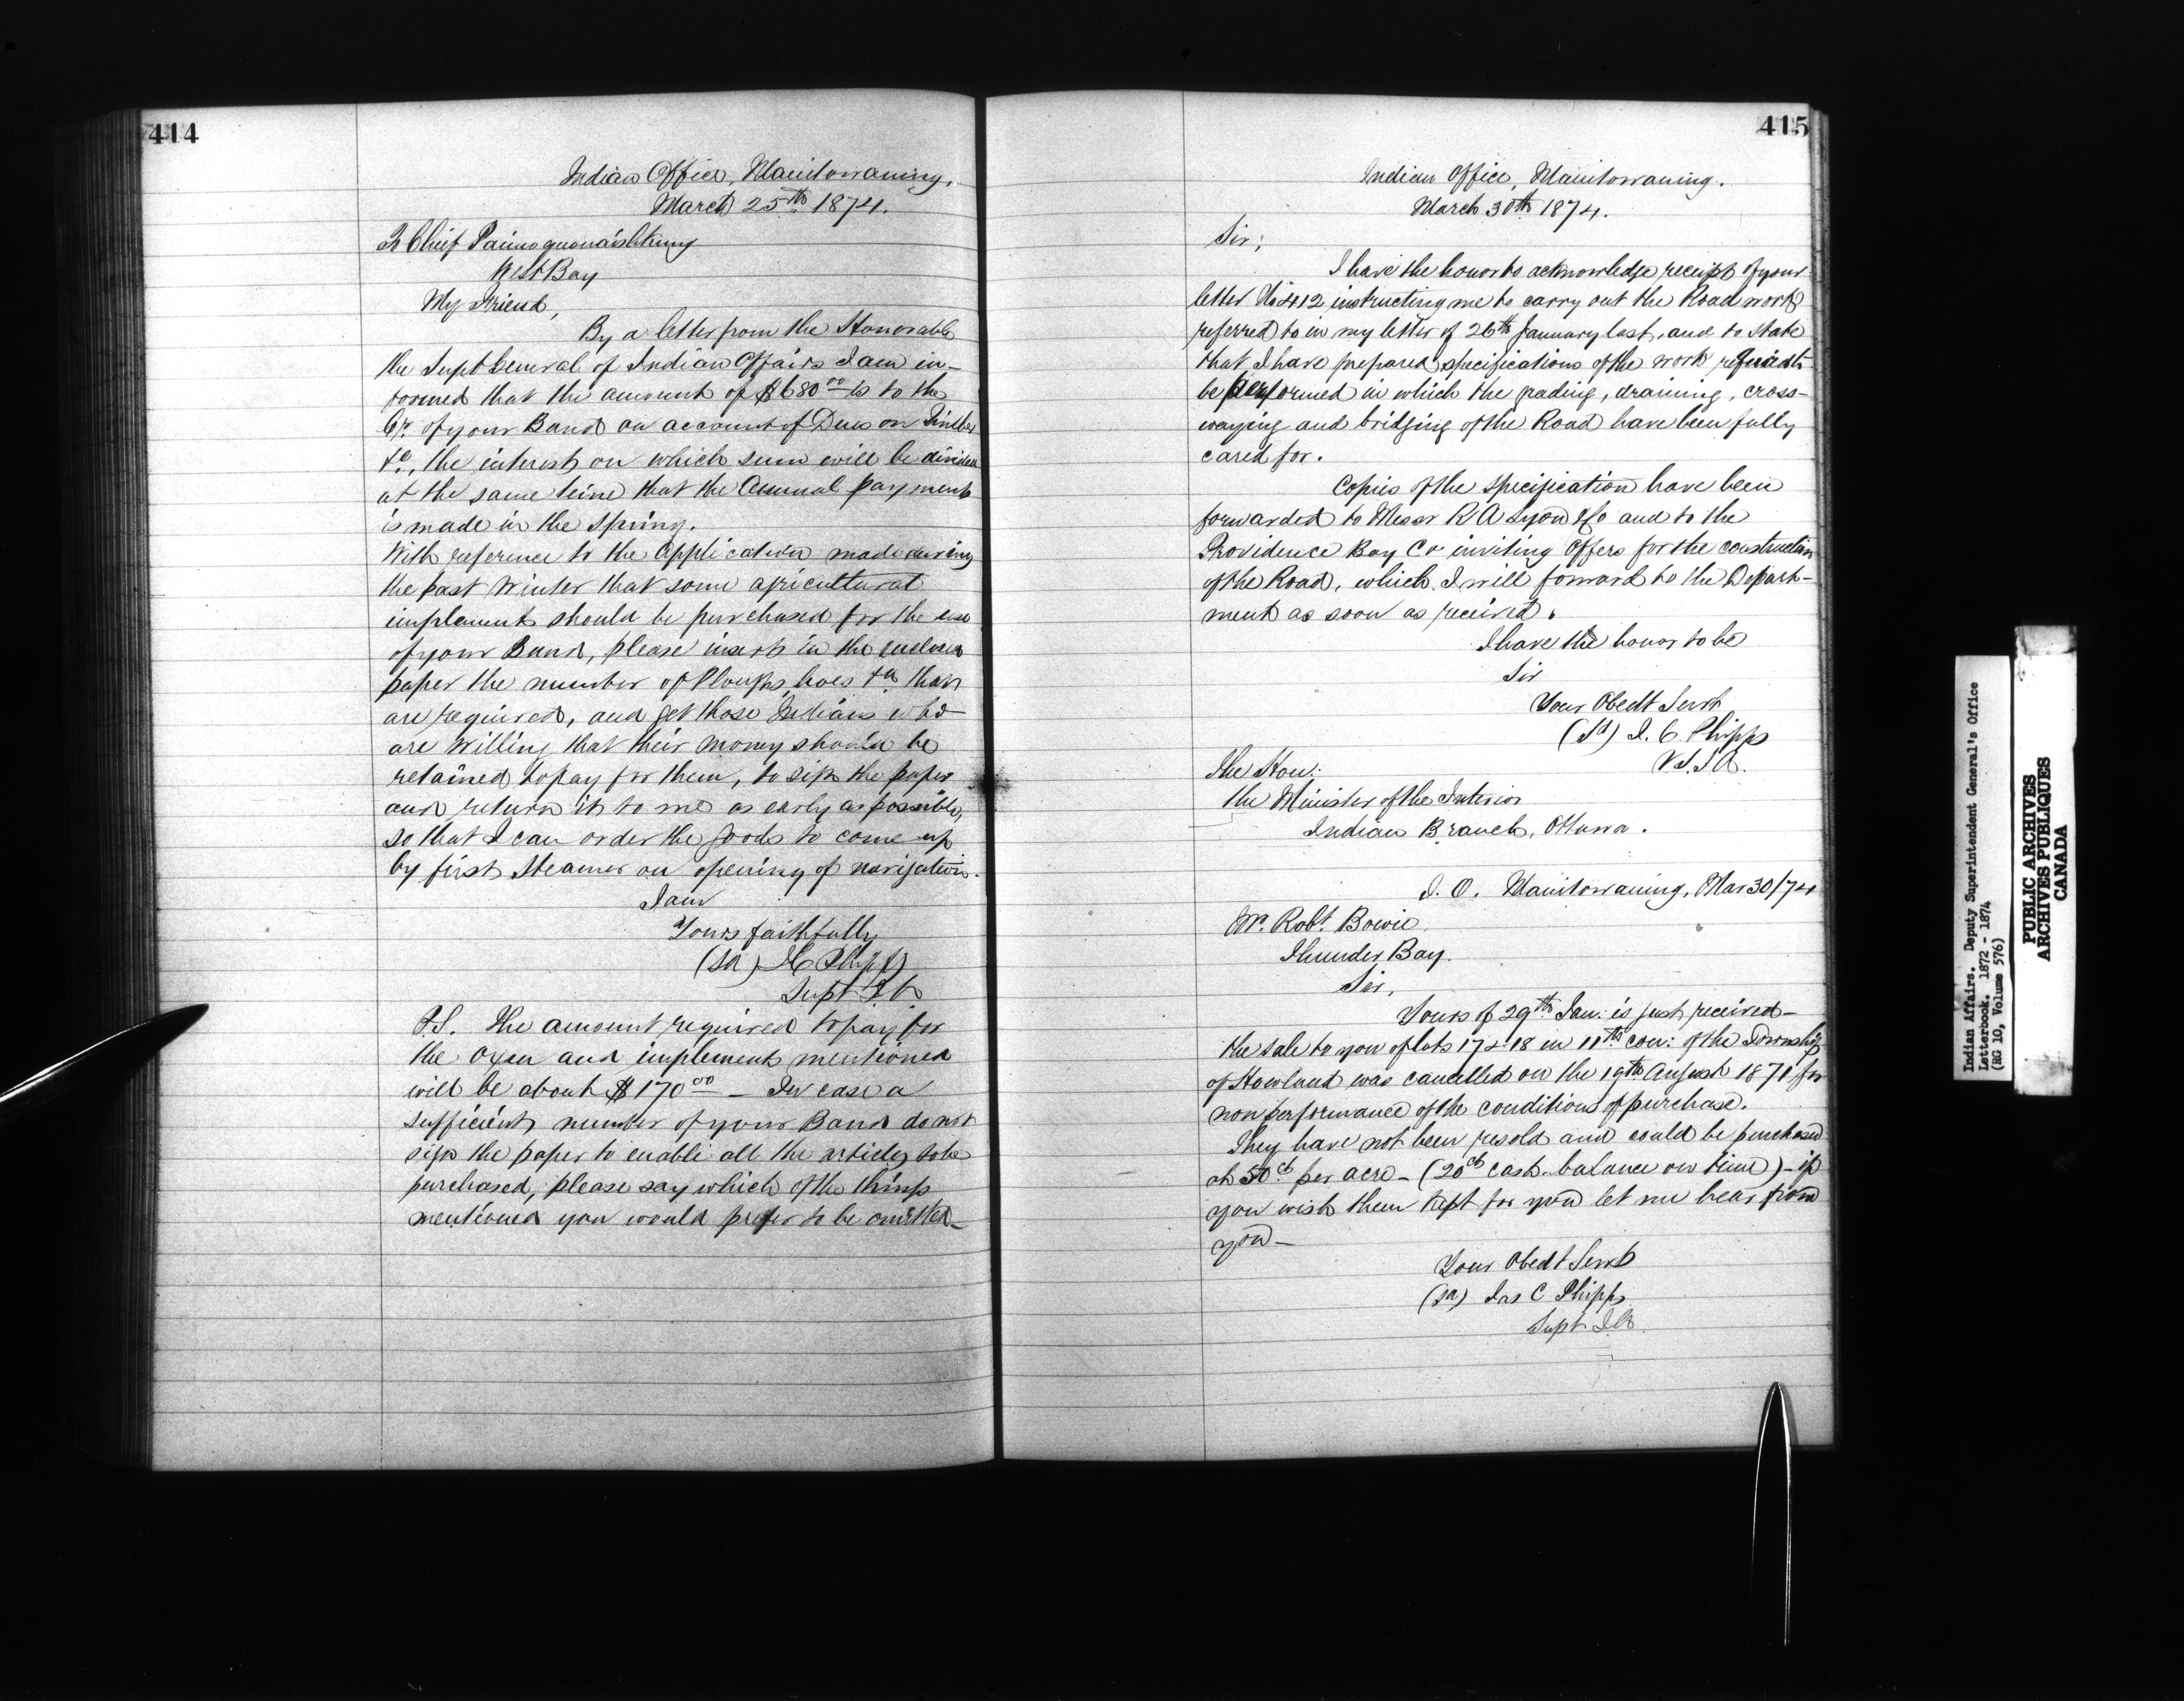 414
Indian Office, Manitowaning,
March 25th 1874.
To Chief Paimoquonaishkung
West Bay
My Friend,
By a letter from the Honorable
the Supt General of Indian Affairs I am in-
formed that the amount of $680 00 is to the
Cr. of your Band on account of Dues on Timber
&c., the interest on which sum will be divided
at the same time that the Annual payment
is made in the Spring.
With reference to the application made during
the past Winter that some agricultural
implements should be purchased for the use
of your Band, please insert in the enclosed
paper the number of Ploughs, hoes &c that
are required, and get those Indians who
are willing that their money should be
retained to pay for them, to sign the paper
and return it to me as early as possible,
so that I can order the goods to come up
by first Steamer on opening of navigation.
I am
Yours faithfully
(Sd) J C Phipps
Supt I.A.
P.S. The amount required to pay for
the Oxen and implements mentioned
will be about $170 00 - In case a
sufficient number of your Band do not
sign the paper to enable all the articles to be
purchased, please say which of the things
mentioned you would prefer to be omitted-
415
Indian Office, Manitowaning.
March 30th 1874.
Sir;
I have the honor to acknowledge receipt of your
letter No 2412 instructing me to carry out the Road work
referred to in my letter of 26th January last, and to state
that I have prepared specifications of the work required to
be performed in which the grading, draining, cross-
waying and bridging of the Road have been fully
cared for.
Copies of the specification have been
forwarded to Messr R A Lyon & Co and to the
Providence Bay Co inviting Offers for the construction
of the Road, which I will forward to the Depart-
ment as soon as received.
I have the honor to be
Sir
Your Obedt Servt
(Sd) J. C. Phipps
V.S.I.A.
The Hon:
the Minister of the Interior
Indian Branch, Ottawa.
I. O. Manitowaning, Mar 30/74
Mr. Robt. Bowie
Thunder Bay.
Sir,
Yours of 29th Jan: is just received-
the sale to you of lots 17 & 18 in 11th con: of the Township
of Howland was cancelled on the 19th August 1871 for
non performance of the conditions of purchase.
They have not been resold and could be purchased
at 50 ct per acre - (20 ct cash balance on time) - if
you wish them kept for you let me hear from
you -
Your Obedt Servt
(Sd) Jas C Phipps
Supt I.A.
Indian Affairs. Deputy Superintendent General's Office
Letterbook. 1872 - 1874
(RG 10, Volume 576)
PUBLIC ARCHIVES
ARCHIVES PUBLIQUES
CANADA